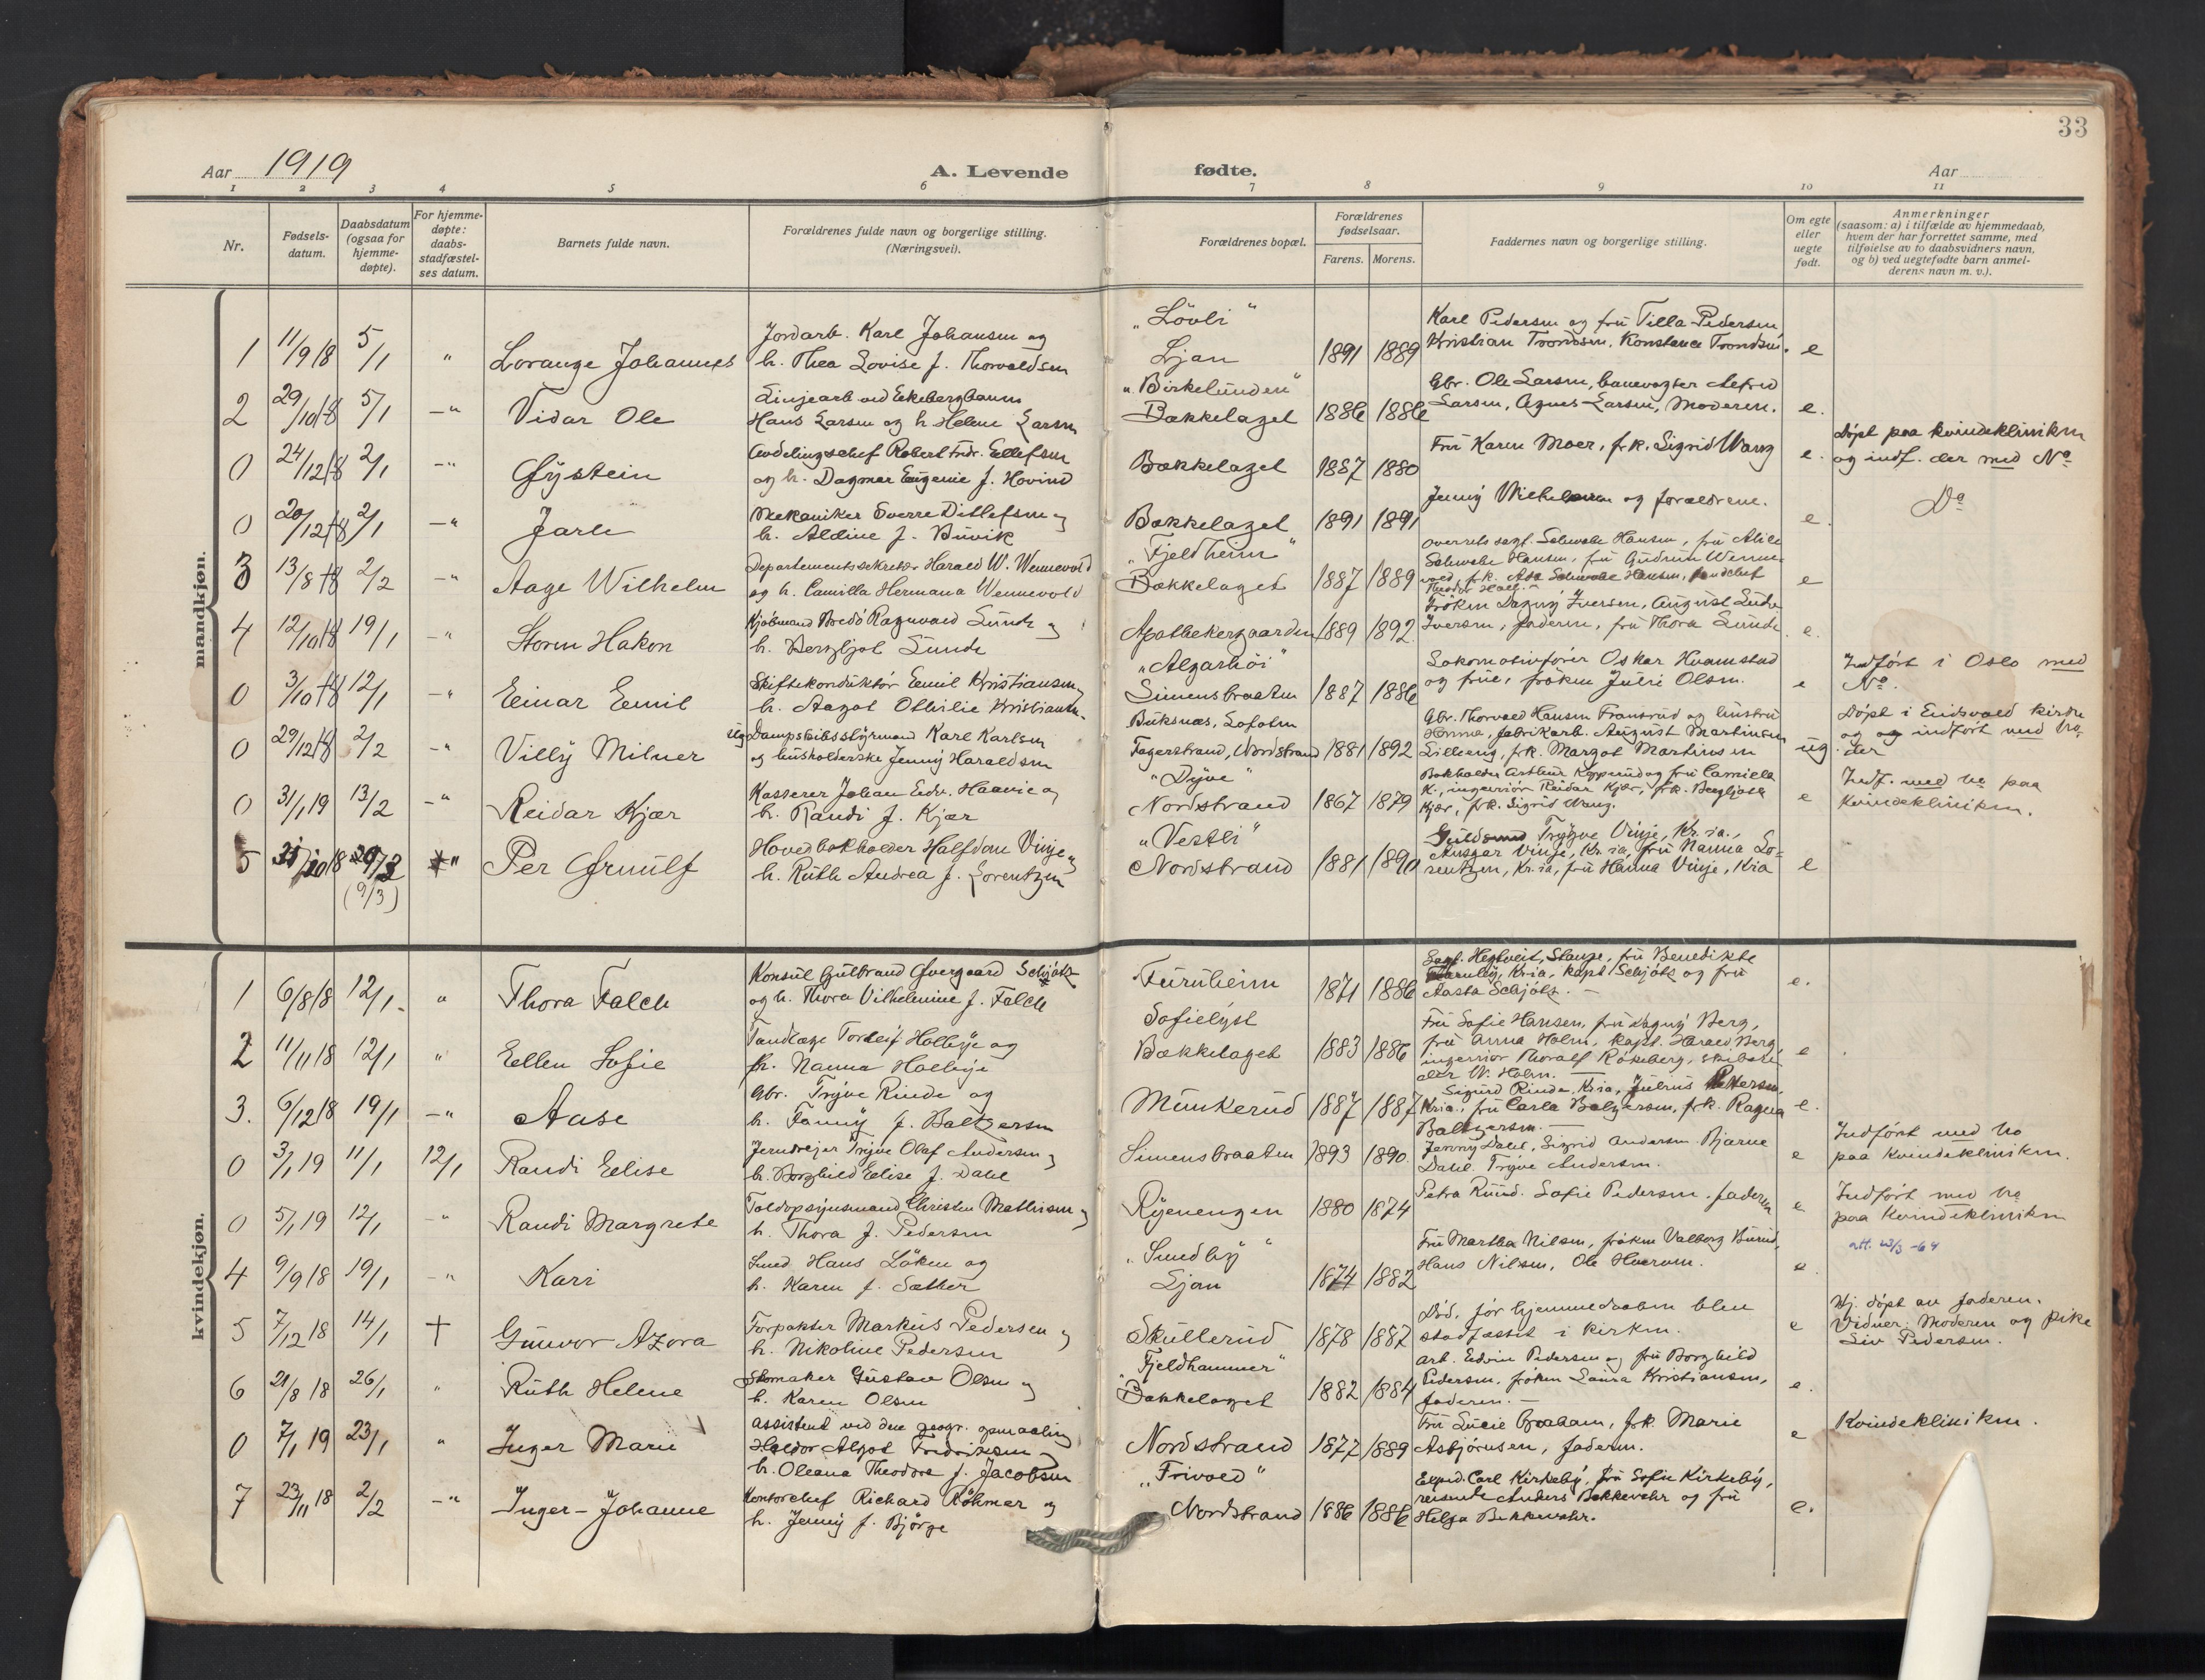 33
Aar 1919 A. Levende fødte. Aar
1 2 3 4 5 6 7 8 9 10 11
Nr.
Fødsels-
datum.
Daabsdatum
(ogsaa for
hjemme-
døpte).
For hjemme-
døpte:
daabs-
stadfæstel-
ses datum.
Barnets fulde navn.
Forældrenes fulde navn og borgerlige stilling.
(Næringsvei).
Forældrenes bopæl.
Forældrenes
fødselsaar.
Farens. Morens.
Faddernes navn og borgerlige stilling.
Om egte
eller
uegte
født.
Anmerkninger
(saasom: a) i tilfælde av hjemmedaab,
hvem der har forrettet samme, med
tilføielse av to daabsvidners navn,
og b) ved uegtefødte barn anmel-
derens navn m. v.).
mandkjøn.
1 11/9 18 5/1 " Lorange Johannes
Jordarb. Karl Johansen og
h. Thea Lovise f. Thorvaldsen
"Lövli"
Ljan 1891 1889
Karl Pedersen og fru Tilla Pedersen
Kristian Trondsen, Konstance Trondsen. e
2 29/10 18 5/1 -" Vidar Ole
Linjearb ved Ekebergbanen
Hans Larsen og h Helene Larsen
"Birkelunden"
Bækkelaget 1886 1886
Gbr. Ole Larsen, banevogter Alfred
Larsen, Agnes Larsen, Moderen. e.
0 24/12 18 2/1 -" Øystein
Avdelingschef Robert Fredr. Ellefsen
og h. Dagmar Eugenie f. Hovind
Bækkelaget 1887 1880
Fru Karen Moer, frk. Sigrid Wang e.
Døpt paa kvindekliniken
og indf. der med No
0 20/12 18 2/1 -" Jarle
Mekaniker Sverre Ditlefsen og
h. Aldine f. Buvik
Bækkelaget 1891 1891
Jenny Wilhelmsen og forældrene. e.
Do
3 13/8 18 2/2 -" Aage Wilhelm
Departementssekretær Harald W. Wennevold
og h. Camilla Hermana Wennevold
"Fjeldheim"
Bækkelaget 1887 1889
Overretssagf. Schwabe Hansen, fru Alice
Schwabe Hansen, fru Gudrun Wenne-
vold, frk. Asa Schwabe Hansen,
e
4 12/10 18 19/1 -" Storm Hakon
Kjøbmand Bredo Ragnvald Sunde og
h. Bergljot Sunde
Apothekergaarden 1889 1892
Frøken Dagny Iversen, August
Iversen, faderen, fru Thora Sunde e.
0 3/10 18 12/1 -" Einar Emil
Skiftekonduktør Emil Kristiansen og
h. Aagot Othilie Kristiansen.
"Algarhöi"
Simensbraaten 1887 1886
Lokomotivfører Oskar Hvamstad
og frue, frøken Julie Olsen. e
Indført i Oslo med
No.
0 29/12 18 2/2 -" Villy Milner
Ug Dampskibsstyrmand Karl Karlsen
og husholderske Jenny Haraldsen
Buksnæs, Lofoten
Fagerstrand, Nordstrand 1881 1892
Gbr. Thorvald Hansen Fransrud og hustru
Anna, fabrikarb. August Martinsen
frk. Margot Martinsen ug.
Døpt i Eidsvold kirke
og og indført med No.
der
0 31/1 19 13/2 -" Reidar Kjær
Kasserer Johan Edv. Haavie og
h. Randi f. Kjær
"Dyve"
Nordstrand 1867 1879
Bokholder Arthur og fru Camilla
K., ingeniør Reidar Kjær, frk. Bergljot
Kjær, frk. Sigrid Wang. e
Indf. med No paa
Kvindekliniken.
5 (9/3) Per Ørnulf
Hovedbokholder Halfdan Vinje og
h. Ruth Andrea f. Lorentzen
"Vestli"
Nordstrand 1881 1890
Guldsmed Trygve Vinje, Kr.ia.,
Ansgar Vinje, Kr.ia, fru Nanna Lo-
rentzen, Kr.ia, fru Hanna Vinje, Kria e
kvindekjøn.
1 6/8 18 12/1. " Thora Falch
Konsul Gulbrand Overgaard Schjøtz
og h. Thora Vilhelmine f. Falch
Furuheim 1871 1886
Sagf. Hegtveit, Stange, fru Benedikte
Kria, kapt. Schjøtz og fru
Aasta Schjøtz. - e.
2 11/11 18 12/1 " Ellen Sofie
Tandlæge Torleif Holbye og
fr. Nanna Holbye
Sofielyst
Bækkelaget 1883 1886
Fru Sofie Hansen, fru Dagny Berg,
fru Anna Holm, kapt. Harald Berg,
ingeniør Thoralf Rökeberg, skibsre-
der W. Holm. - e.
3. 6/12 18 19/1 -" Aase
Gbr. Trygve Rinde og
h. Fanny f. Baltzersen
Munkerud 1887 1887
Sigurd Rinde, Kria, Julius Pettersen,
Kria., fru Carla Baltzersen, frk. Ragna
Baltzersen. - e.
0 3/1 19 11/1 12/1 Randi Elise
Jerndreier Trygve Olaf Andersen og
h. Borghild Elise f. Dahl
Simensbraaten 1893 1890.
Jenny Dahl, Sigrid Andersen. Bjarne
Dahl. Trygve Andersen. e
Indført med No
paa Kvindekliniken.
0 5/1 19 12/1 -" Randi Margrete
Toldopsynsmand Christen Mathisen og
h. Thora f. Pedersen
Ryenengen 1880 1874
Petra Ruud. Sofie Pedersen. faderen e
Indført med No
paa Kvindekliniken
4 9/9 18 19/1 -" Kari
Smed Hans Löken og
h. Karen f. Sæther
"Sundby"
Ljan 1874 1882
Fru Martha Nilsen, frøken Valborg Burud,
Hans Nilsen, Ole Huerum. e.
att. 23/3 -64
5 7/12 18 14/1 † Gunvor Azora
Forpakter Markus Pedersen og
h. Nikoline Pedersen
Skullerud 1878 1887
Död, før hjemmedaaben blev
stadfæstet i kirken. e
Hj. døpt av faderen.
Vidner: Moderen og pike
Liv Pedersen.
6 21/8 18 26/1 " Ruth Helene
Skomaker Gustav Olsen og
h. Karen Olsen
"Fjeldhammer"
Bækkelaget 1882 1884
Arb. Edvin Pedersen og fru Borghild
Pedersen, frøken Laura Kristiansen,
faderen. - e.
0 7/1 19 23/1 " Inger Marie
Assistent ved den geogr. opmaaling
Haldor Algot Fredriksen og
h. Oleana Theodora f. Jacobsen
Nordstrand 1877 1889
Fru Lucie Graham, frk. Marie
Asbjørnsen, faderen. e
Kvindekliniken.
7 23/11 18 2/2 -" Inger-Johanne
Kontorchef Richard Röhmer og
h. Jenny f. Björge
"Frivold"
Nordstrand 1886 1886
Exped. Carl Kirkeby, fru Sofie Kirkeby,
reisende Anders Bekkevahr og fru
Helga Bekkevahr. e.